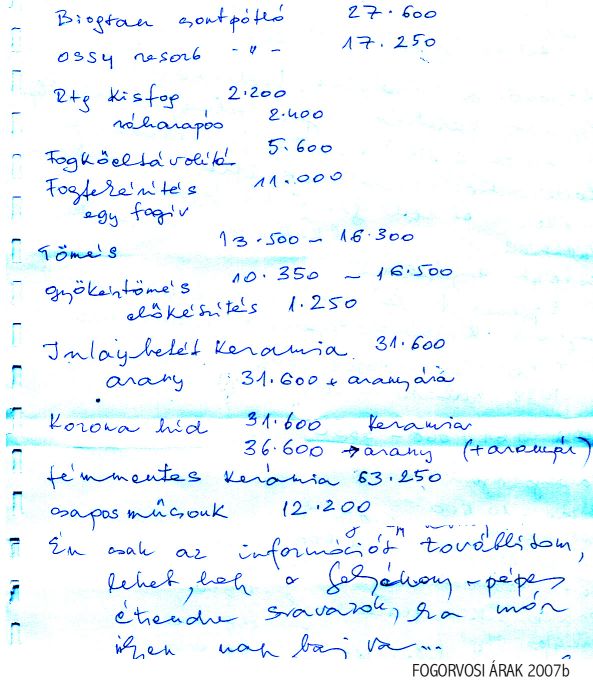 Biogran csontpótló 27.600
ossy resorb - " - 17.250
Rtg kisfog 2.200
ráharapós 2.400
Fogkőeltávolítá 5.600
Fogfehérítés 11.000
egy fogív
Tömés 13.500 - 16.300
gyökértömés 10.350 - 16.500
előkészítés 1.250
Inlaybetét Keramia 31.600
arany 31.600 + arany ára
Korona híd 31.600 Keramia
36.600 → arany (+ aranyár)
fémmentes kerámia 63.250
csapos műcsonk 12.200
Én csak az információt továbbítom,
lehet, hogy a folyékony - pépes
étrendre szavazok, ha már
ilyen nagy baj va...
FOGORVOSI ÁRAK 2007b